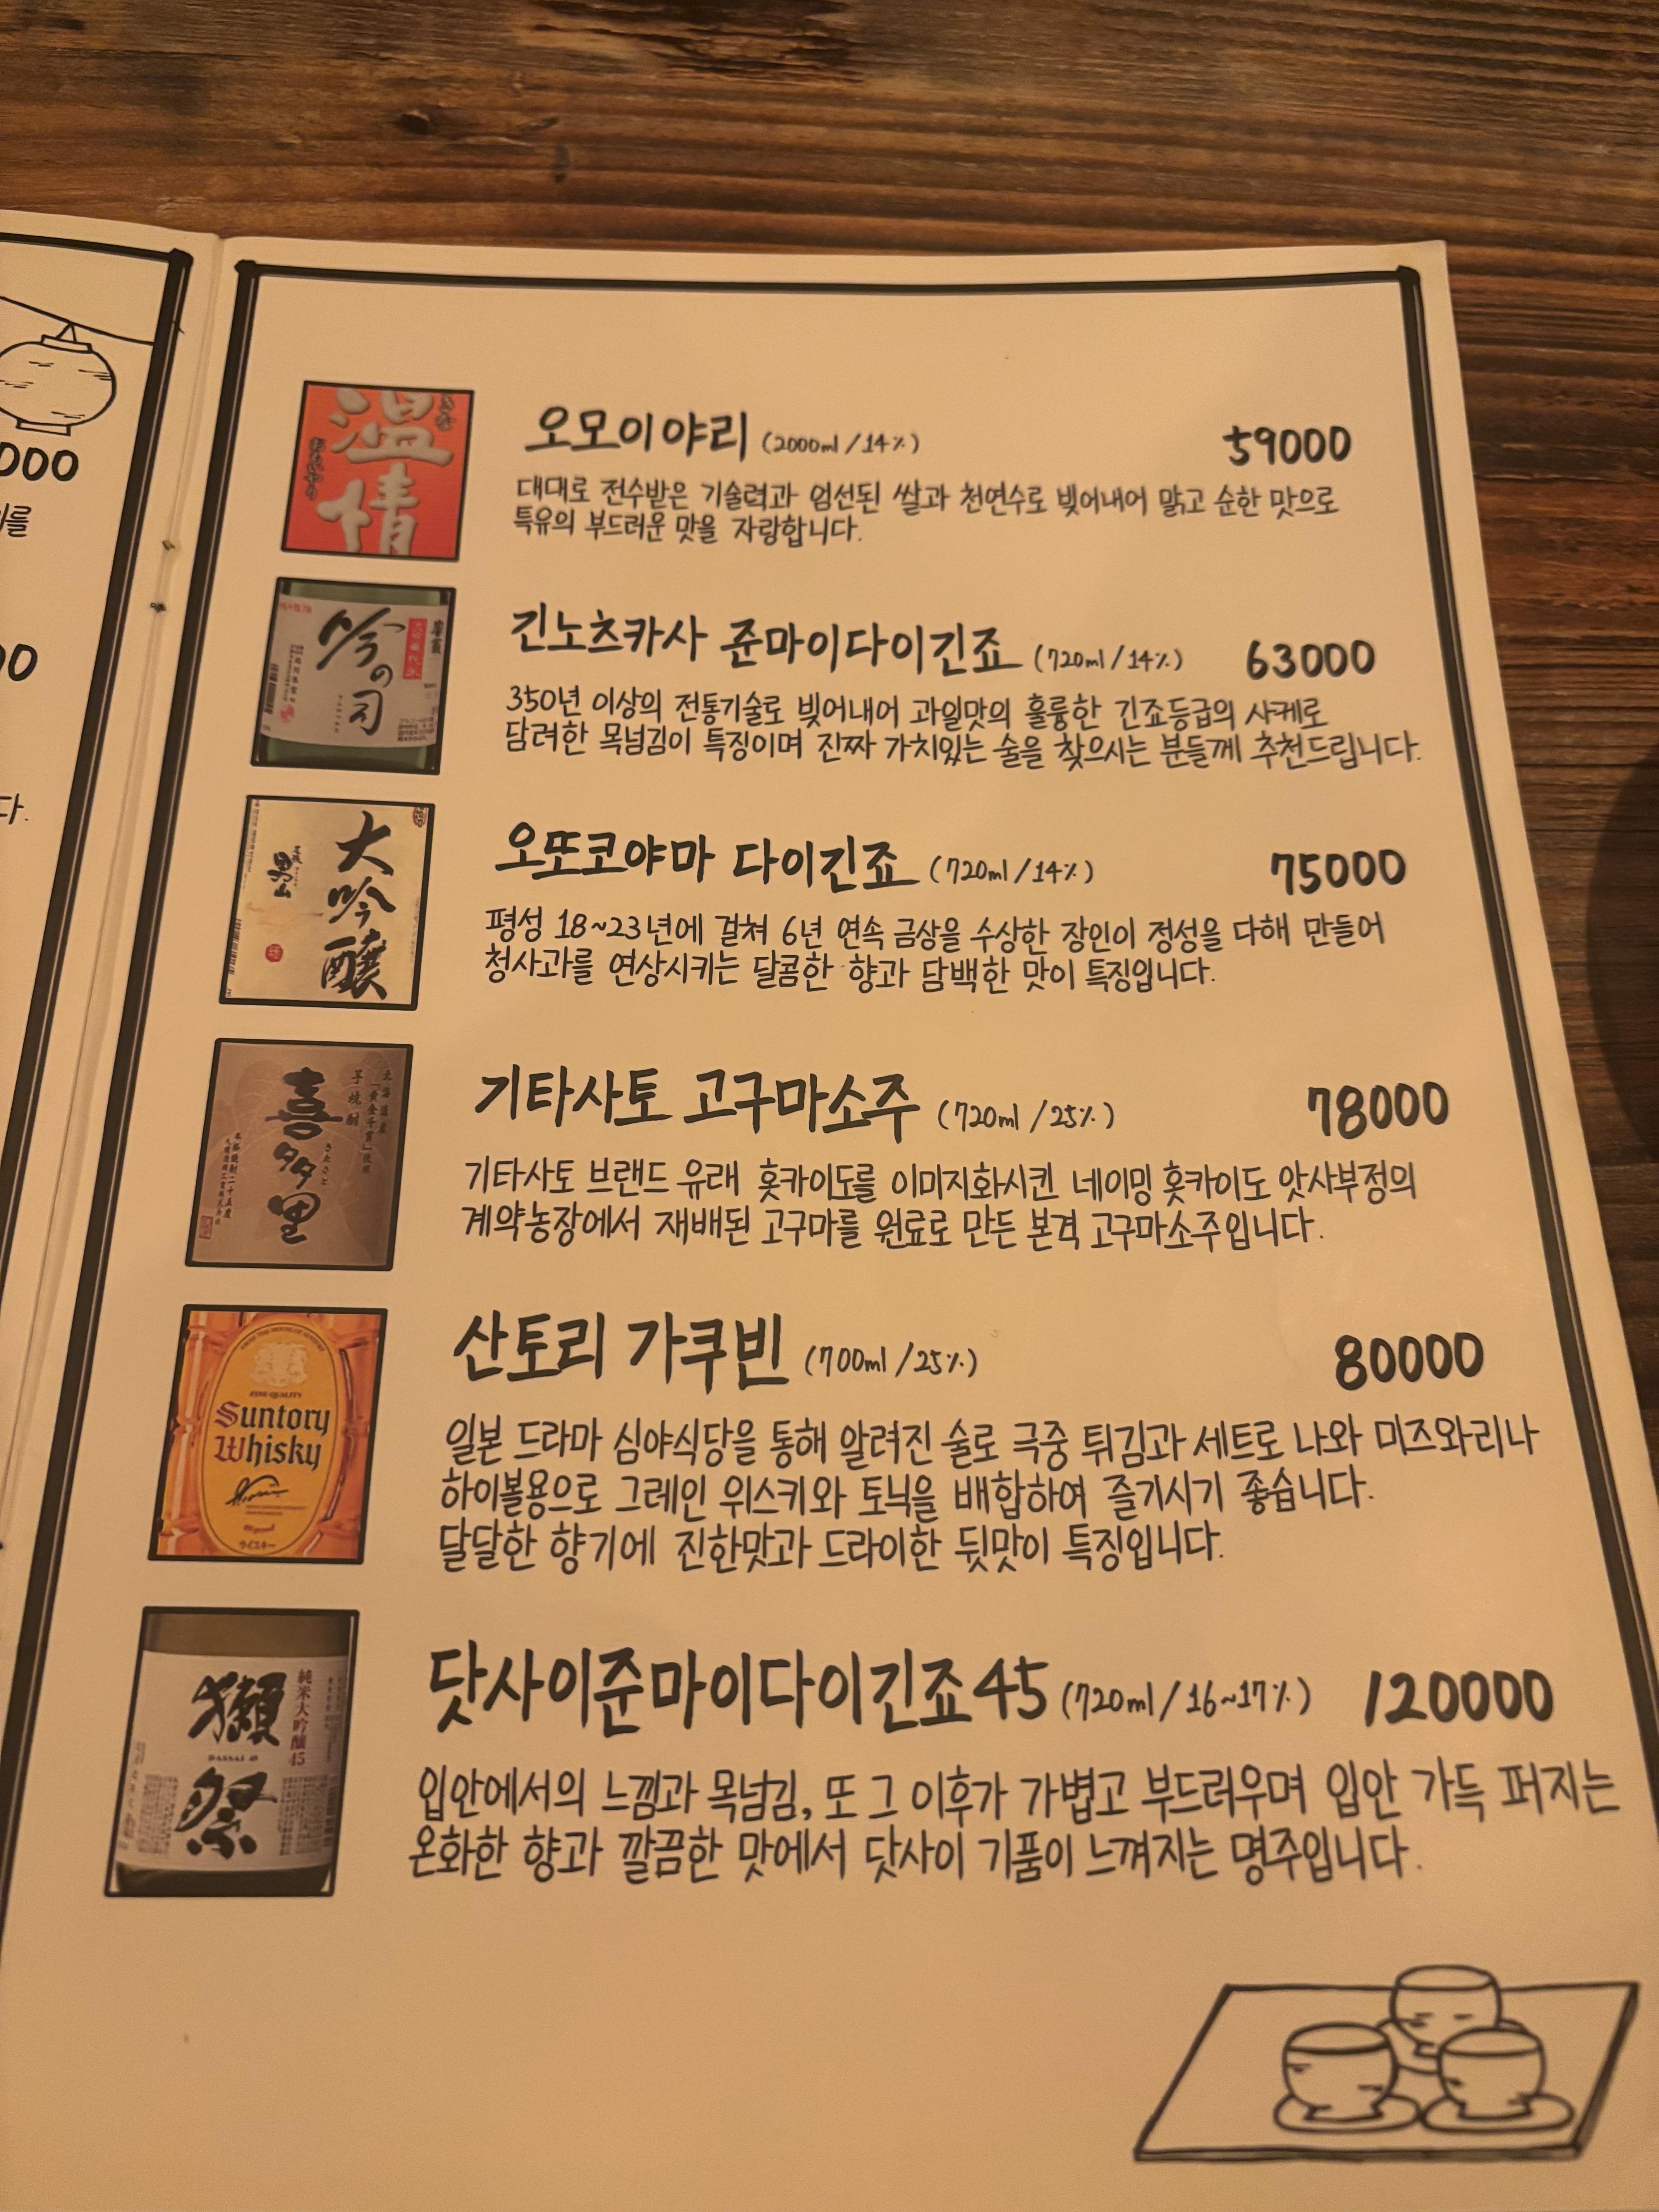 000
를
00
다.
温情
오모이야리 (2000ml/14%) 59000
대대로 전수받은 기술력과 엄선된 쌀과 천연수로 빚어내어 맑고 순한 맛으로
특유의 부드러운 맛을 자랑합니다.
吟の司
긴노츠카사 준마이다이긴죠 (720ml/14%) 63000
350년 이상의 전통기술로 빚어내어 과일맛의 훌륭한 긴죠등급의 사케로
담려한 목넘김이 특징이며 진짜 가치있는 술을 찾으시는 분들께 추천드립니다.
大吟醸
男山
오또코야마 다이긴죠 (720ml/14%) 75000
평성 18~23년에 걸쳐 6년 연속 금상을 수상한 장인이 정성을 다해 만들어
청사과를 연상시키는 달콤한 향과 담백한 맛이 특징입니다.
北海道産
「黄金千貫」使用
芋焼酎
喜多里
きたさと
기타사토 고구마소주 (720ml/25%) 78000
기타사토 브랜드 유래 홋카이도를 이미지화시킨 네이밍 홋카이도 앗사부정의
계약농장에서 재배된 고구마를 원료로 만든 본격 고구마소주입니다.
FINE QUALITY
Suntory
Whisky
ウイスキー
산토리 가쿠빈 (700ml/25%) 80000
일본 드라마 심야식당을 통해 알려진 술로 극중 튀김과 세트로 나와 미즈와리나
하이볼용으로 그레인 위스키와 토닉을 배합하여 즐기시기 좋습니다.
달달한 향기에 진한맛과 드라이한 뒷맛이 특징입니다.
純米大吟醸45
獺祭
DASSAI 45
닷사이준마이다이긴죠45 (720ml/16~17%) 120000
입안에서의 느낌과 목넘김, 또 그 이후가 가볍고 부드러우며 입안 가득 퍼지는
온화한 향과 깔끔한 맛에서 닷사이 기품이 느껴지는 명주입니다.